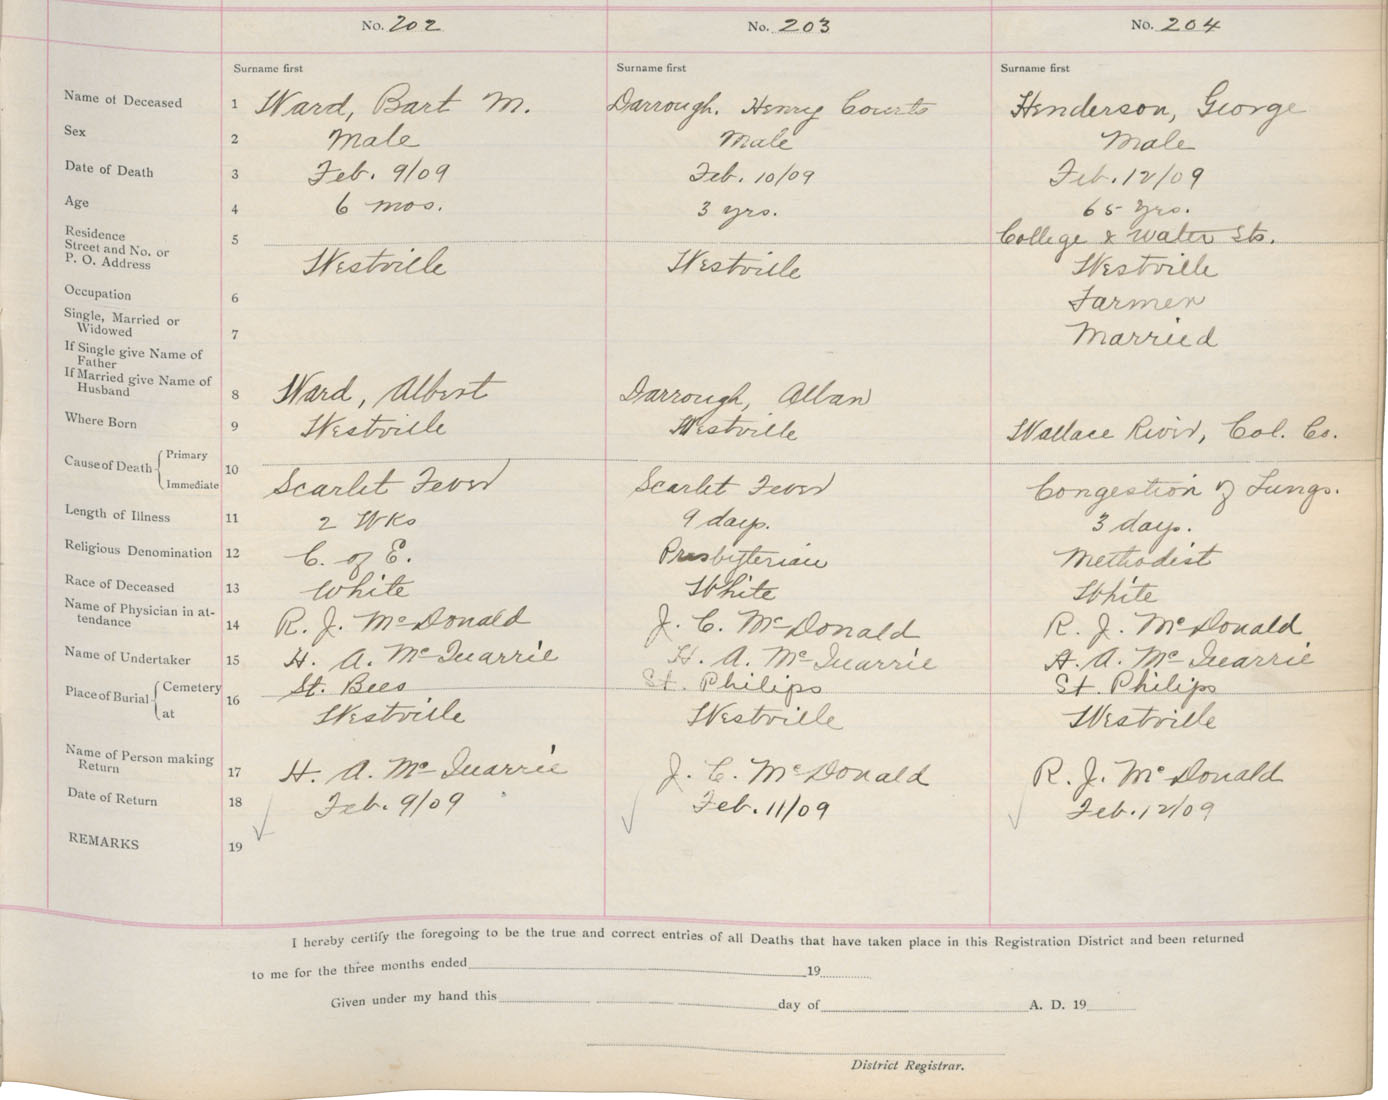 No. 202 No. 203 No. 204
Surname first Surname first Surname first
Name of Deceased 1 Ward, Bart M. Darrough, Henry Courts Henderson, George
Sex 2 Male Male Male
Date of Death 3 Feb. 9/09 Feb. 10/09 Feb. 12/09
Age 4 6 mos. 3 yrs. 65 yrs.
Residence
Street and No. or 5 College & Water Sts.
P. O. Address Westville Westville Westville
Occupation 6 Farmer
Single, Married or
Widowed 7 Married
If Single give Name of
Father
If Married give Name of
Husband 8 Ward, Albert Darrough, Alban
Where Born 9 Westville Westville Wallace River, Col. Co.
Cause of Death Primary
Immediate 10 Scarlet Fever Scarlet Fever Congestion of Lungs.
Length of Illness 11 2 Wks 9 days. 3 days.
Religious Denomination 12 C. of E. Presbyterian Methodist
Race of Deceased 13 White White White
Name of Physician in at-
tendance 14 R. J. McDonald J. C. McDonald R. J. McDonald
Name of Undertaker 15 H. A. McQuarrie H. A. McQuarrie H. A. McQuarrie
Place of Burial Cemetery 16 St. Bees St. Philips St. Philips
at Westville Westville Westville
Name of Person making
Return 17 H. A. McQuarrie J. C. McDonald R. J. McDonald
Date of Return 18 Feb. 9/09 Feb. 11/09 Feb. 12/09
REMARKS 19
I hereby certify the foregoing to be the true and correct entries of all Deaths that have taken place in this Registration District and been returned
to me for the three months ended 19
Given under my hand this day of A. D. 19
District Registrar.